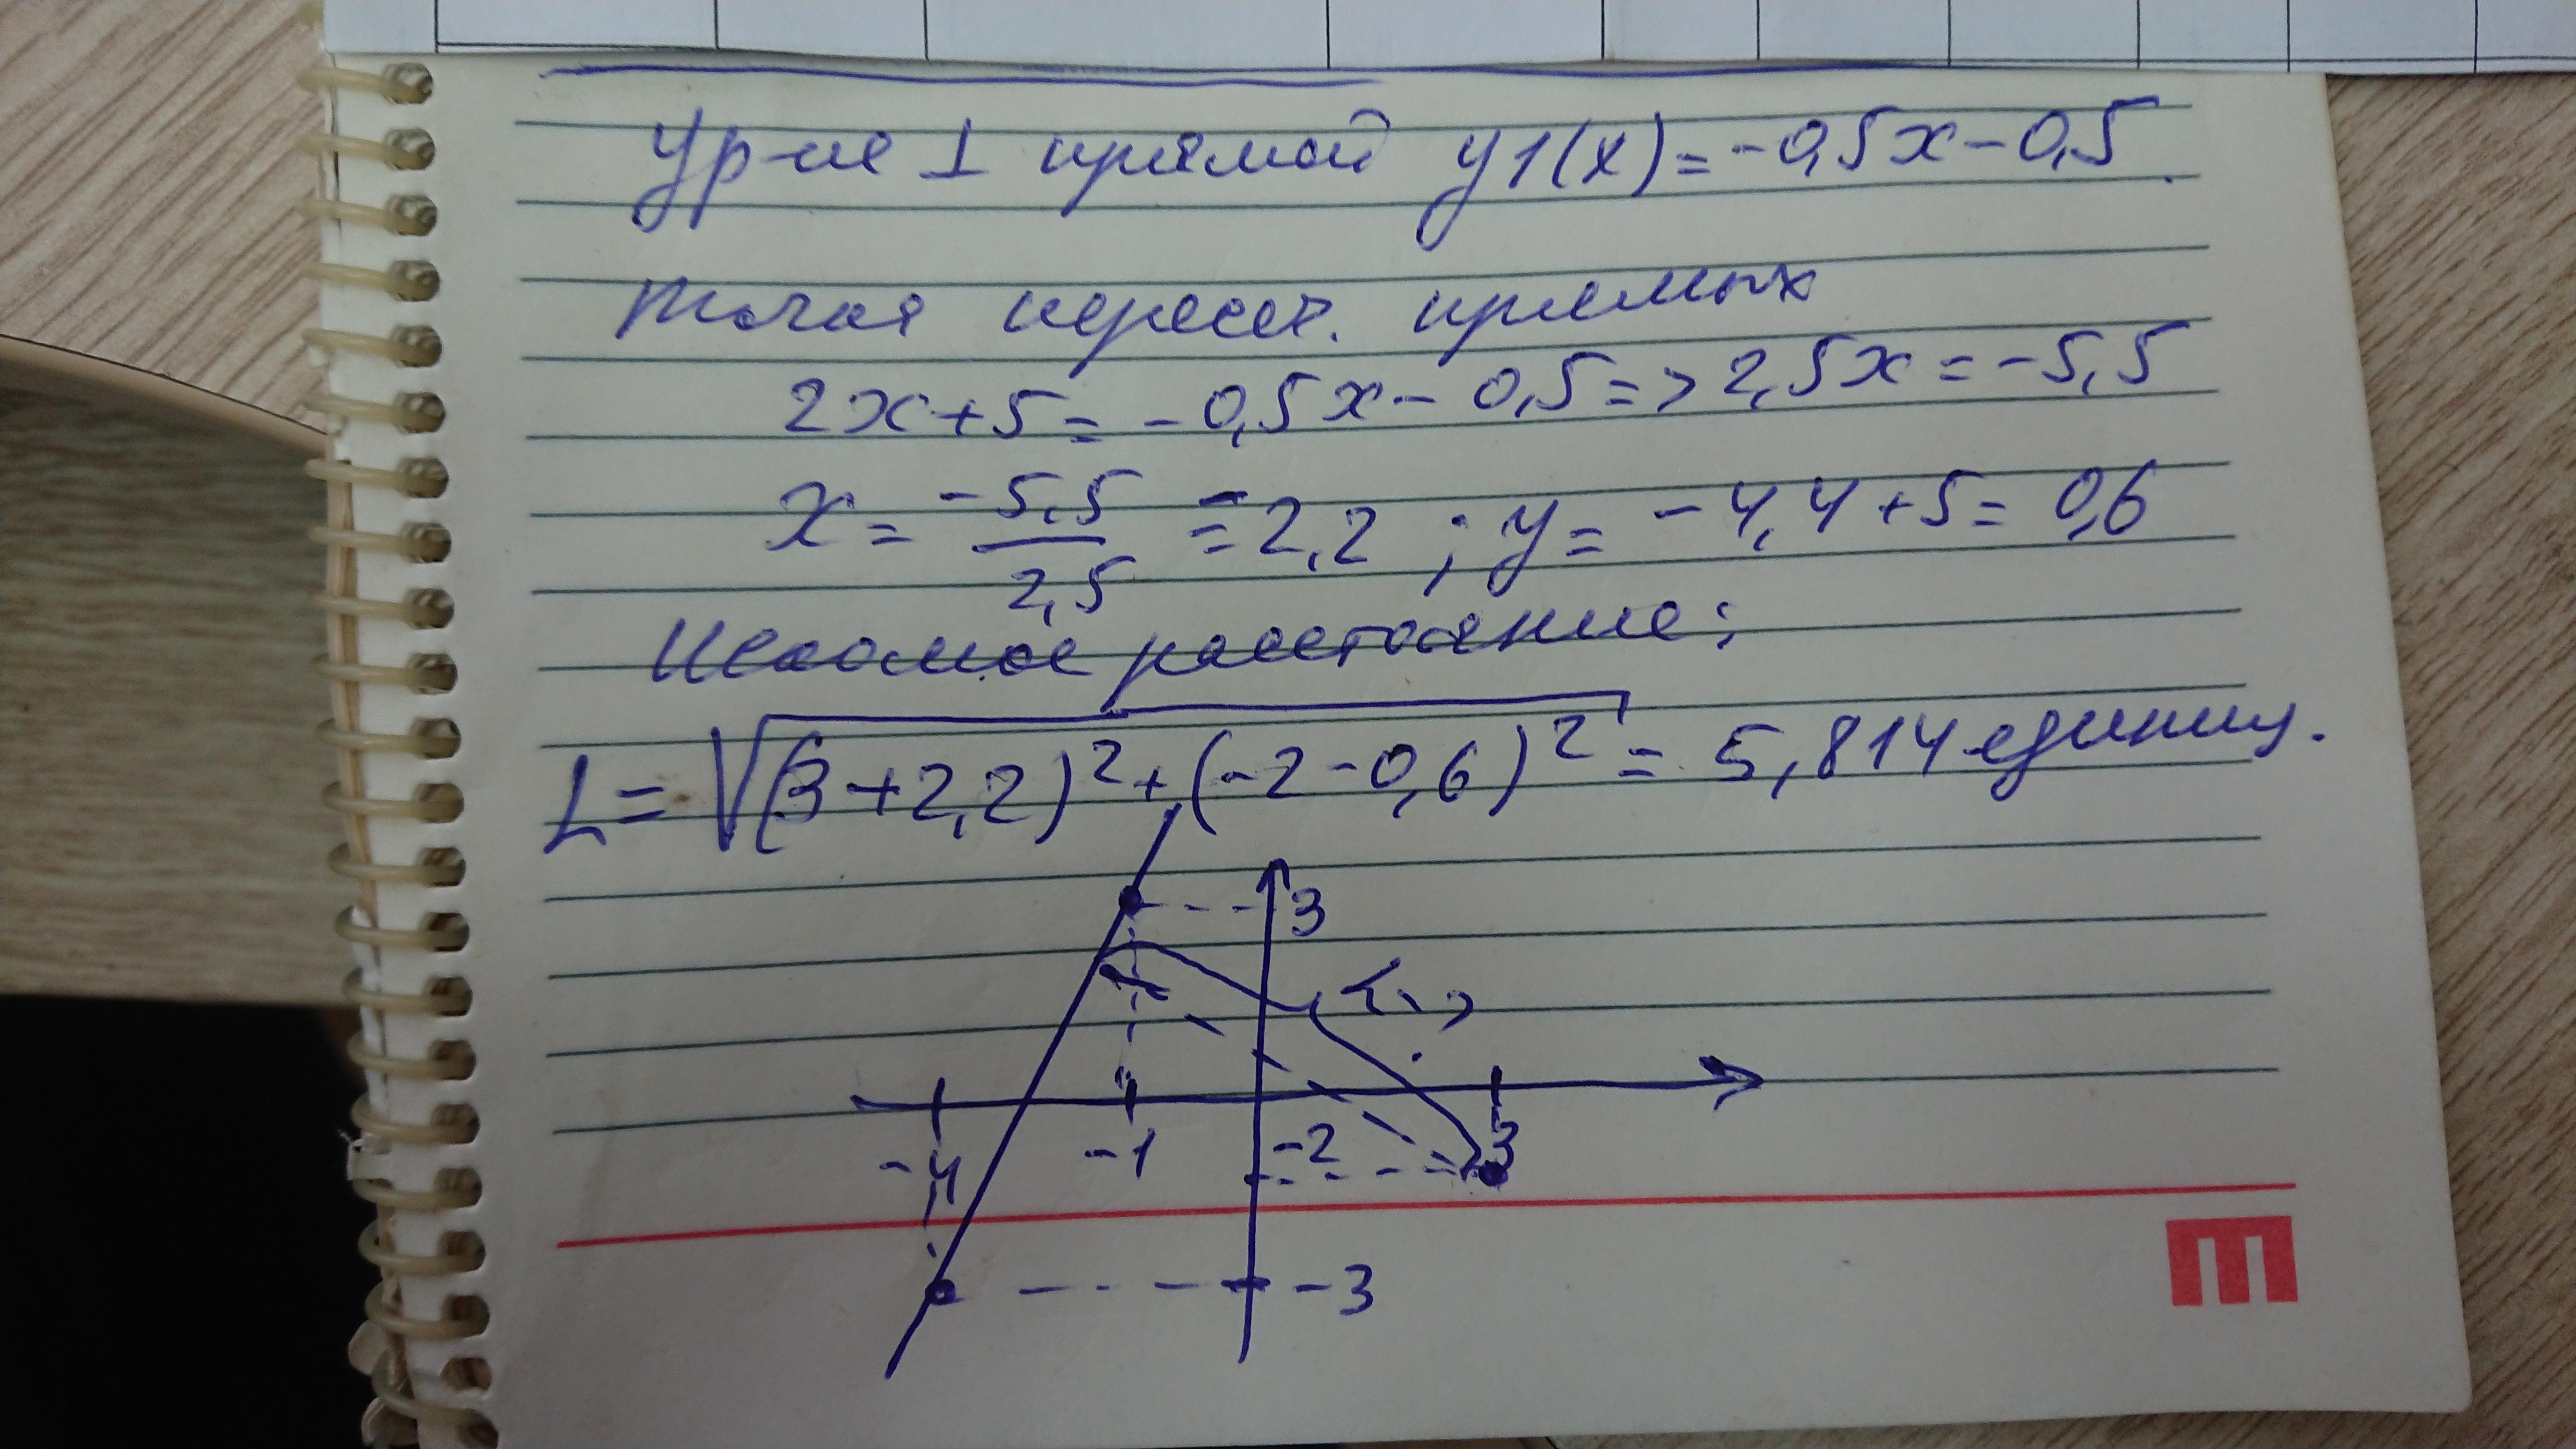 Ур-ие ⊥ прямой y1(x) = -0,5x - 0,5.
точка пересеч. прямых
2x + 5 = -0,5x - 0,5 => 2,5x = -5,5
x = -5,5/2,5 = -2,2 ; y = -4,4 + 5 = 0,6
Искомое расстояние:
L = √((3 + 2,2)² + (-2 - 0,6)²) = 5,814 единиц.
3
-4 -1 -2 3
-3